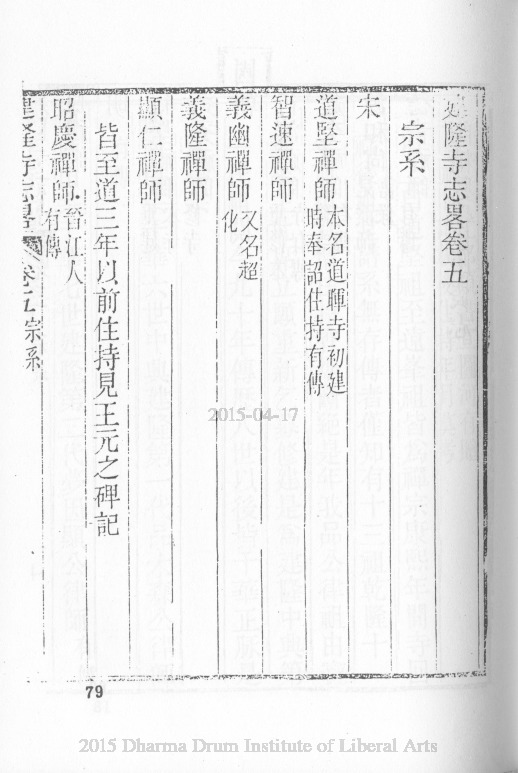 建隆寺志畧卷五
宗系
宋
道堅禪師 本名道暉寺初建時奉詔住持有傳
智速禪師
義幽禪師 又名超化
義隆禪師
顯仁禪師
皆至道三年以前住持見王元之碑記
昭慶禪師 晉江人有傳
建隆寺志畧 卷五 宗系
2015-04-17
79
2015 Dharma Drum Institute of Liberal Arts